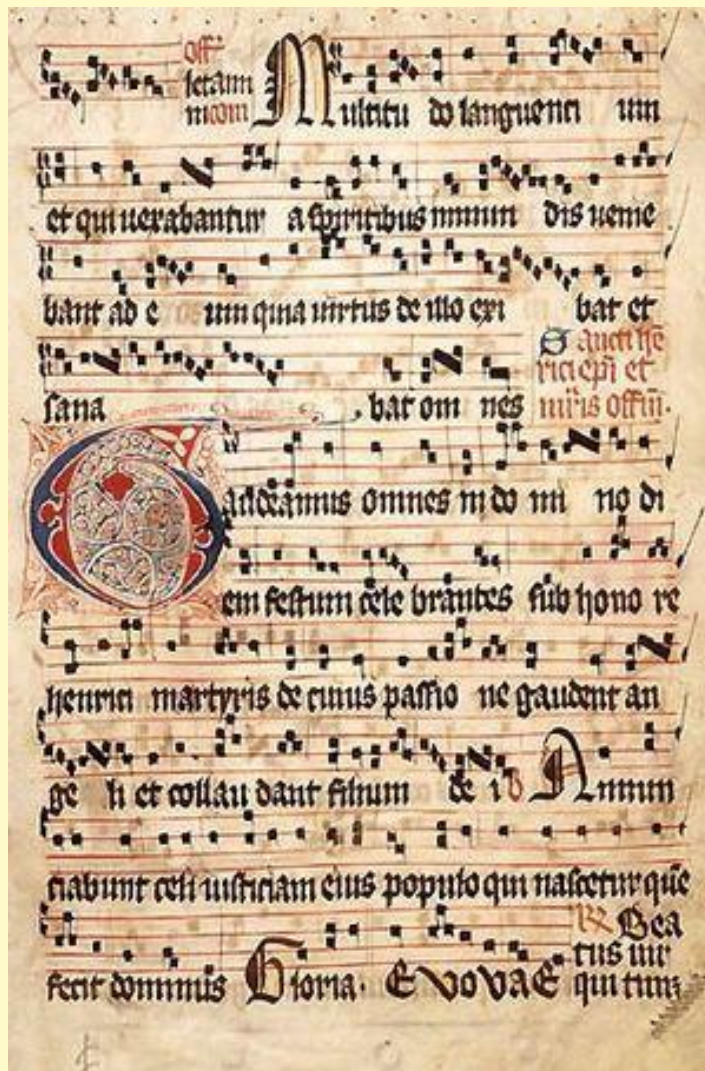 off̄
letam
m com
Multitu do languenci um
et qui uexabantur a spiritibus inmun dis uenie
bant ad e um quia uirtus de illo exi bat et
sana bat om nes
Sancti hē
rici epī et
mr̄is offm̄.
Gaudeamus omnes in do mi no di
em festum cele brantes sub hono re
henrici martyris de cuius passio ne gaudent an
ge li et collau dant filium de i V Annun
ciabunt celi iusticiam eius populo qui nascetur quē
fecit dominus Gloria. EVOVAE
R Bea
tus uir
qui tim̄